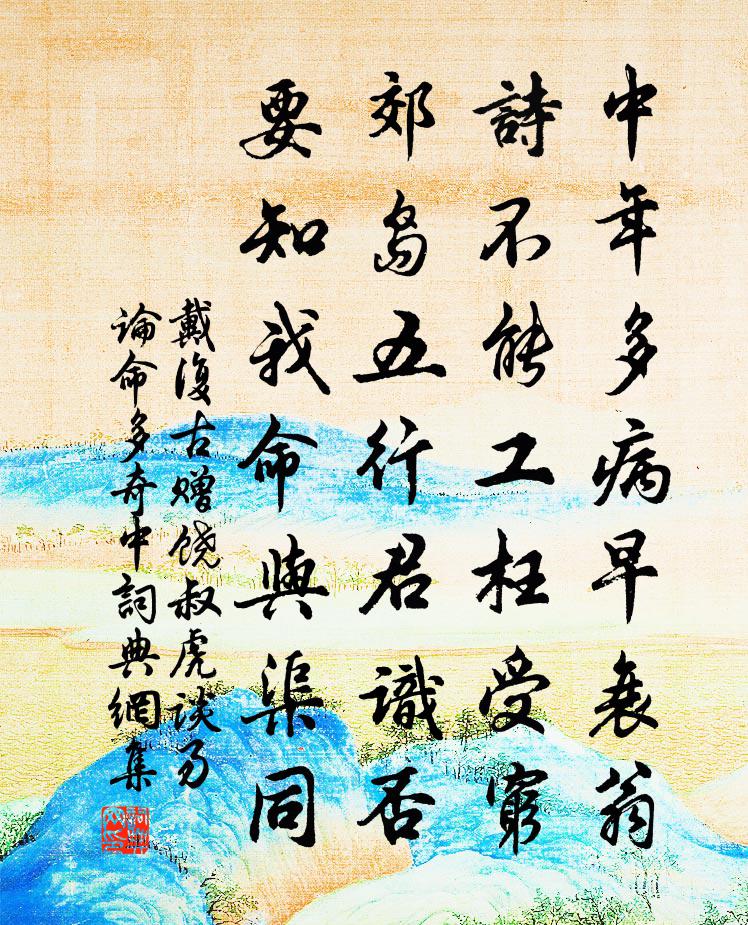 中年多病早衰翁
詩不能工枉受窮
郊島五行君識否
要知我命與渠同
戴復古赠饶叔虎谈易
論命多奇中詞典網集